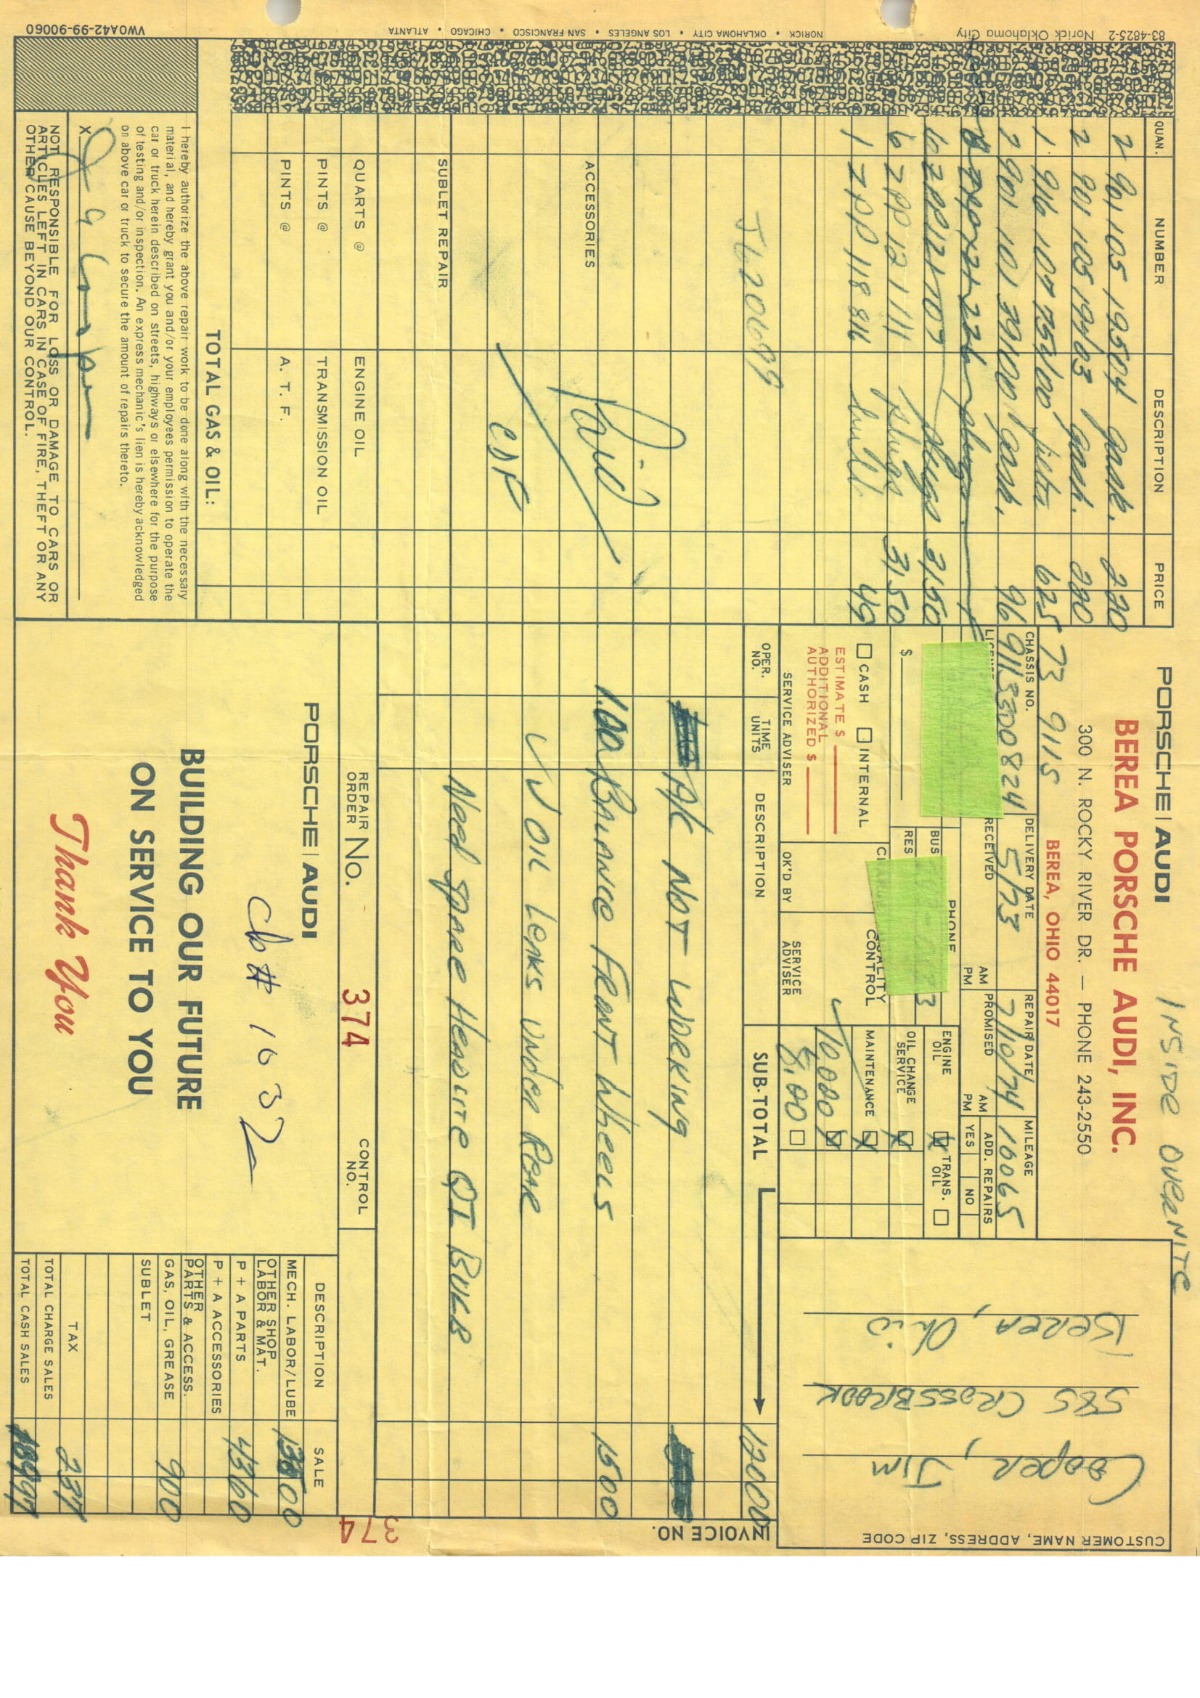 INSIDE OVERNITE
PORSCHE | AUDI
BEREA PORSCHE AUDI, INC.
300 N. ROCKY RIVER DR. — PHONE 243-2550
BEREA, OHIO 44017
73 911S
CUSTOMER NAME, ADDRESS, ZIP CODE
Cooper, Jim
585 CROSSBROOK
BEREA, Ohio
CHASSIS NO. DELIVERY DATE REPAIR DATE MILEAGE
9113300824 5/73 7/10/74 10065
RECEIVED AM PM PROMISED AM PM ADD. REPAIRS YES NO
PHONE
BUS
RES
$
ENGINE OIL X TRANS. OIL
OIL CHANGE SERVICE X
MAINTENANCE X
10,000
8,00
CASH INTERNAL
QUALITY CONTROL
ESTIMATE $
ADDITIONAL AUTHORIZED $
SERVICE ADVISER OK'D BY SERVICE ADVISER
QUAN. NUMBER DESCRIPTION PRICE
2 901 105 195 04 gask. 220
2 901 105 194 03 gask. 220
1 916 107 751 00 filter 625
2 901 101 391 00 gask. 96
plugs 31,50
6 ZPP 121 111 plugs 31,50
1 ZPP 118 816 bulb 49
J620699
ACCESSORIES
Paid
CDF
SUBLET REPAIR
QUARTS @ ENGINE OIL
PINTS @ TRANSMISSION OIL
PINTS @ A. T. F.
TOTAL GAS & OIL:
I hereby authorize the above repair work to be done along with the necessary
material, and hereby grant you and/or your employees permission to operate the
car or truck herein described on streets, highways or elsewhere for the purpose
of testing and/or inspection. An express mechanic's lien is hereby acknowledged
on above car or truck to secure the amount of repairs thereto.
X
NOT RESPONSIBLE FOR LOSS OR DAMAGE TO CARS OR
ARTICLES LEFT IN CARS IN CASE OF FIRE, THEFT OR ANY
OTHER CAUSE BEYOND OUR CONTROL.
OPER. NO. TIME UNITS DESCRIPTION SUB-TOTAL 12000
INVOICE NO.
374
A/C NOT WORKING
1.00 BALANCE FRONT WHEELS 1500
OIL LEAKS UNDER REAR
Need SPARE HEADLITE QI BULB
REPAIR ORDER No. 374 CONTROL NO.
PORSCHE | AUDI
Ck# 1032
BUILDING OUR FUTURE
ON SERVICE TO YOU
Thank You
DESCRIPTION SALE
MECH. LABOR/LUBE 13500
OTHER SHOP LABOR & MAT.
P + A PARTS 4360
P + A ACCESSORIES
OTHER PARTS & ACCESS.
GAS, OIL, GREASE 900
SUBLET
TAX 237
TOTAL CHARGE SALES
TOTAL CASH SALES
83-4025-2 Norick Oklahoma City
NORICK • OKLAHOMA CITY • LOS ANGELES • SAN FRANCISCO • CHICAGO • ATLANTA
VWOA42-99-90060